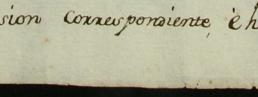 sion Correspondiente, è h